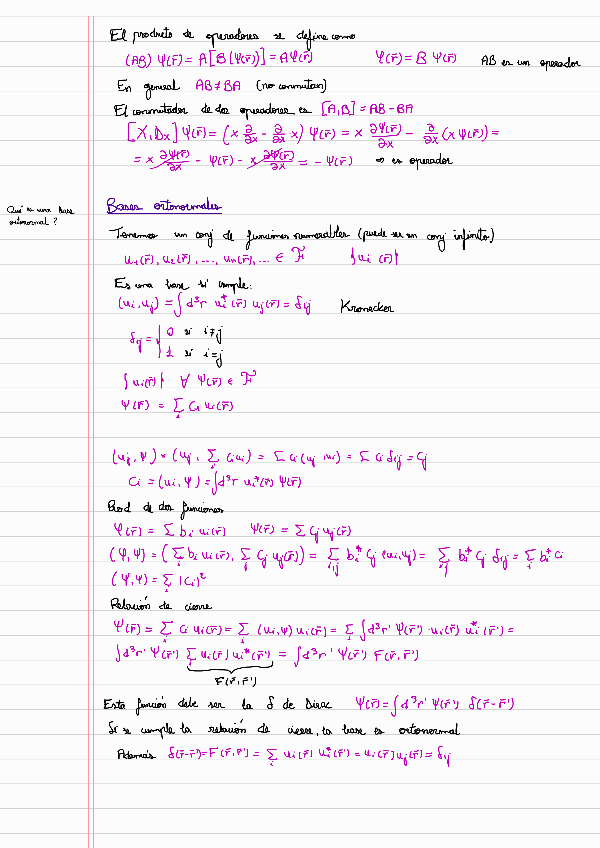 El producto de operadores se define como
(AB) Ψ(r̄) = A[B(Ψ(r̄))] = AΨ(r̄) Ψ(r̄) = B Ψ(r̄) AB es un operador
En general AB ≠ BA (no conmutan)
El conmutador de dos operadores es [A,B] = AB - BA
[X, Dx] Ψ(r̄) = (x ∂/∂x - ∂/∂x x) Ψ(r̄) = x ∂Ψ(r̄)/∂x - ∂/∂x (x Ψ(r̄)) =
= x ∂Ψ(r̄)/∂x - Ψ(r̄) - x ∂Ψ(r̄)/∂x = - Ψ(r̄) ⇒ es operador
Qué es una base
ortonormal?
Bases ortonormales
Tenemos un conj de funciones numerables (puede ser un conj infinito)
u₁(r̄), u₂(r̄), ..., uₙ(r̄), ... ∈ F {ui (r̄)}
Es una base si cumple:
(ui, uj) = ∫ d³r ui*(r̄) uj(r̄) = δij Kronecker
δij = { 0 si i≠j
1 si i=j
{ui(r̄)} ∀ Ψ(r̄) ∈ F
Ψ(r̄) = Σi Ci ui(r̄)
(uj, Ψ) = (uj, Σi Ci ui) = Σ Ci (uj, ui) = Σ Ci δij = Cj
Ci = (ui, Ψ) = ∫ d³r ui*(r̄) Ψ(r̄)
Prod de dos funciones
φ(r̄) = Σ bi ui(r̄) Ψ(r̄) = Σ Cj uj(r̄)
(φ, Ψ) = (Σi bi ui(r̄), Σj Cj uj(r̄)) = Σi,j bi* Cj (ui, uj) = Σij bi* Cj δij = Σi bi* Ci
(Ψ, Ψ) = Σi |Ci|²
Relación de cierre
Ψ(r̄) = Σi Ci ui(r̄) = Σi (ui, Ψ) ui(r̄) = Σi ∫ d³r' Ψ(r̄') · ui(r̄) ui*(r̄') =
∫ d³r' Ψ(r̄') Σi ui(r̄) ui*(r̄') = ∫ d³r' Ψ(r̄') F(r̄, r̄')
F(r̄, r̄')
Esta función debe ser la δ de Dirac Ψ(r̄) = ∫ d³r' Ψ(r̄') δ(r̄ - r̄')
Si se cumple la relación de cierre, la base es ortonormal
Además δ(r̄-r̄') = F(r̄, r̄') = Σi ui(r̄) ui*(r̄') = ui(r̄) uj(r̄) = δij